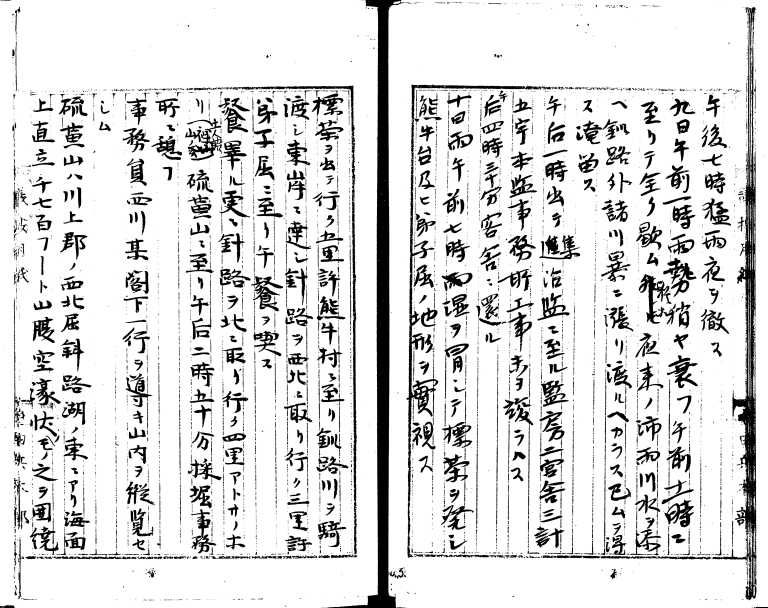 午後七時猛雨夜ヲ徹ス
九日午前一時雨勢稍ヤ衰フ午前十一時ニ
至リテ全ク歇ム 夜来ノ沛雨川水ヲ添
ヘ釧路外諸川暴ニ漲リ渡ルヘカラス已ムヲ得
ス滝留ス
午后一時出テ集治監ニ至ル監房二官舎三計
五宇本監事務所工事未ヲ竣ラヘス
午后四時三十分客舎ニ還ル
十日雨午前七時雨湿ヲ冒シテ標茶ヲ発シ
熊牛台及ヒ弟子屈ノ地形ヲ實視ス
標茶ヲ出テ行ク五里許熊牛村ニ至リ釧路川ヲ騎
渡シ東岸ニ達シ針路ヲ西北ニ取リ行ク三里許
弟子屈ニ至リ午餐ヲ喫ス
餐畢ル更ニ針路ヲ北ニ取リ行ク四里アトサノホ
リ 硫黄山ニ至リ午后二時五十分採堀事務
所ニ憩フ
事務員西川某閣下一行ヲ導キ山内ヲ縦覧セ
シム
硫黄山ハ川上郡ノ西北屈斜路湖ノ東ニアリ海面
上直立千七百フート山腹空濠 之ヲ囲繞